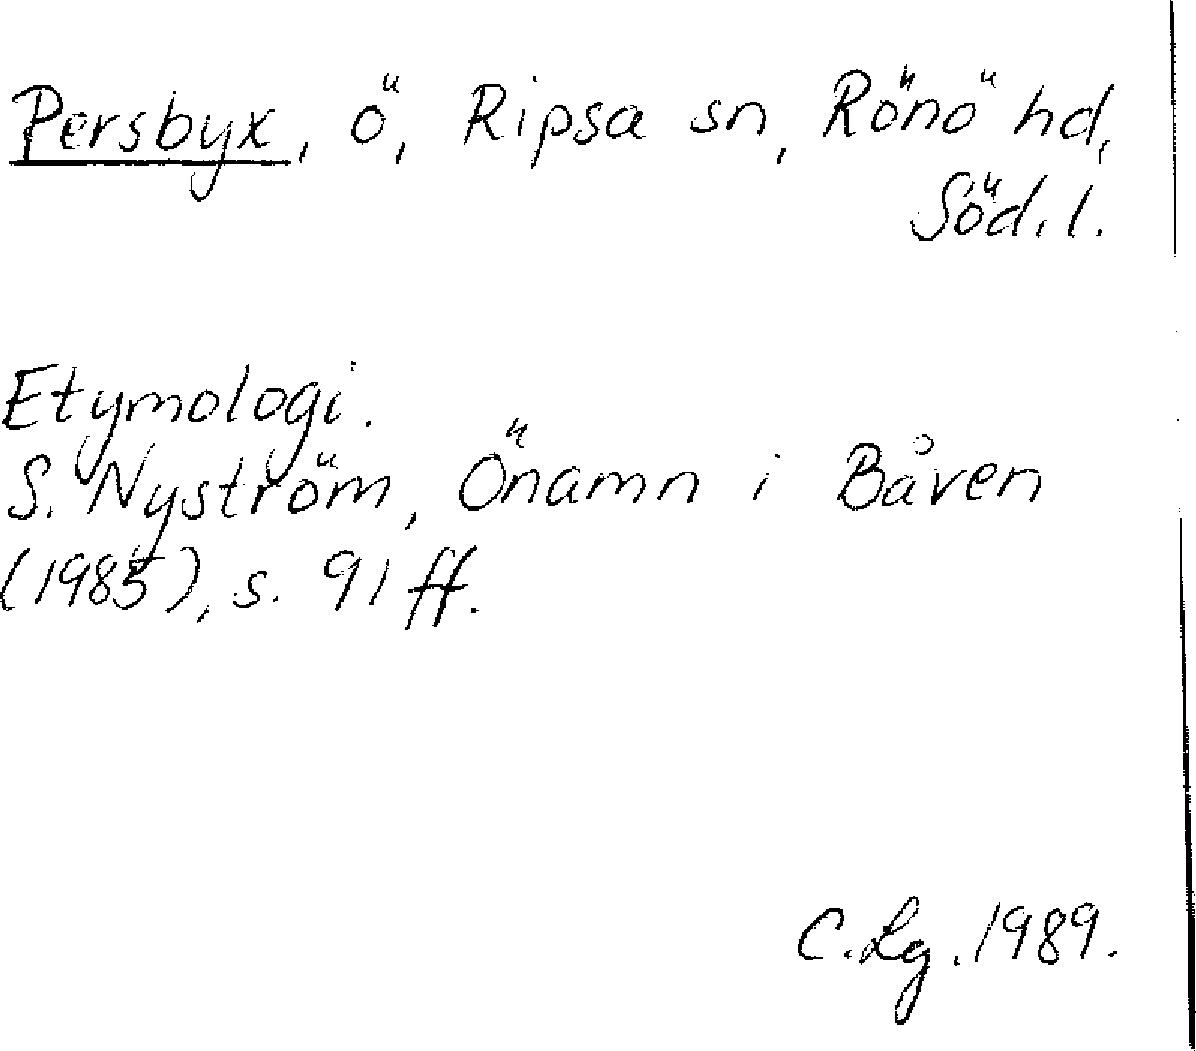 Persbyx, ö, Ripsa sn, Rönö hd,
Söd. l.
Etymologi.
S. Nyström, Önamn i Båven
(1985), s. 91 ff.
C. Lg. 1989.